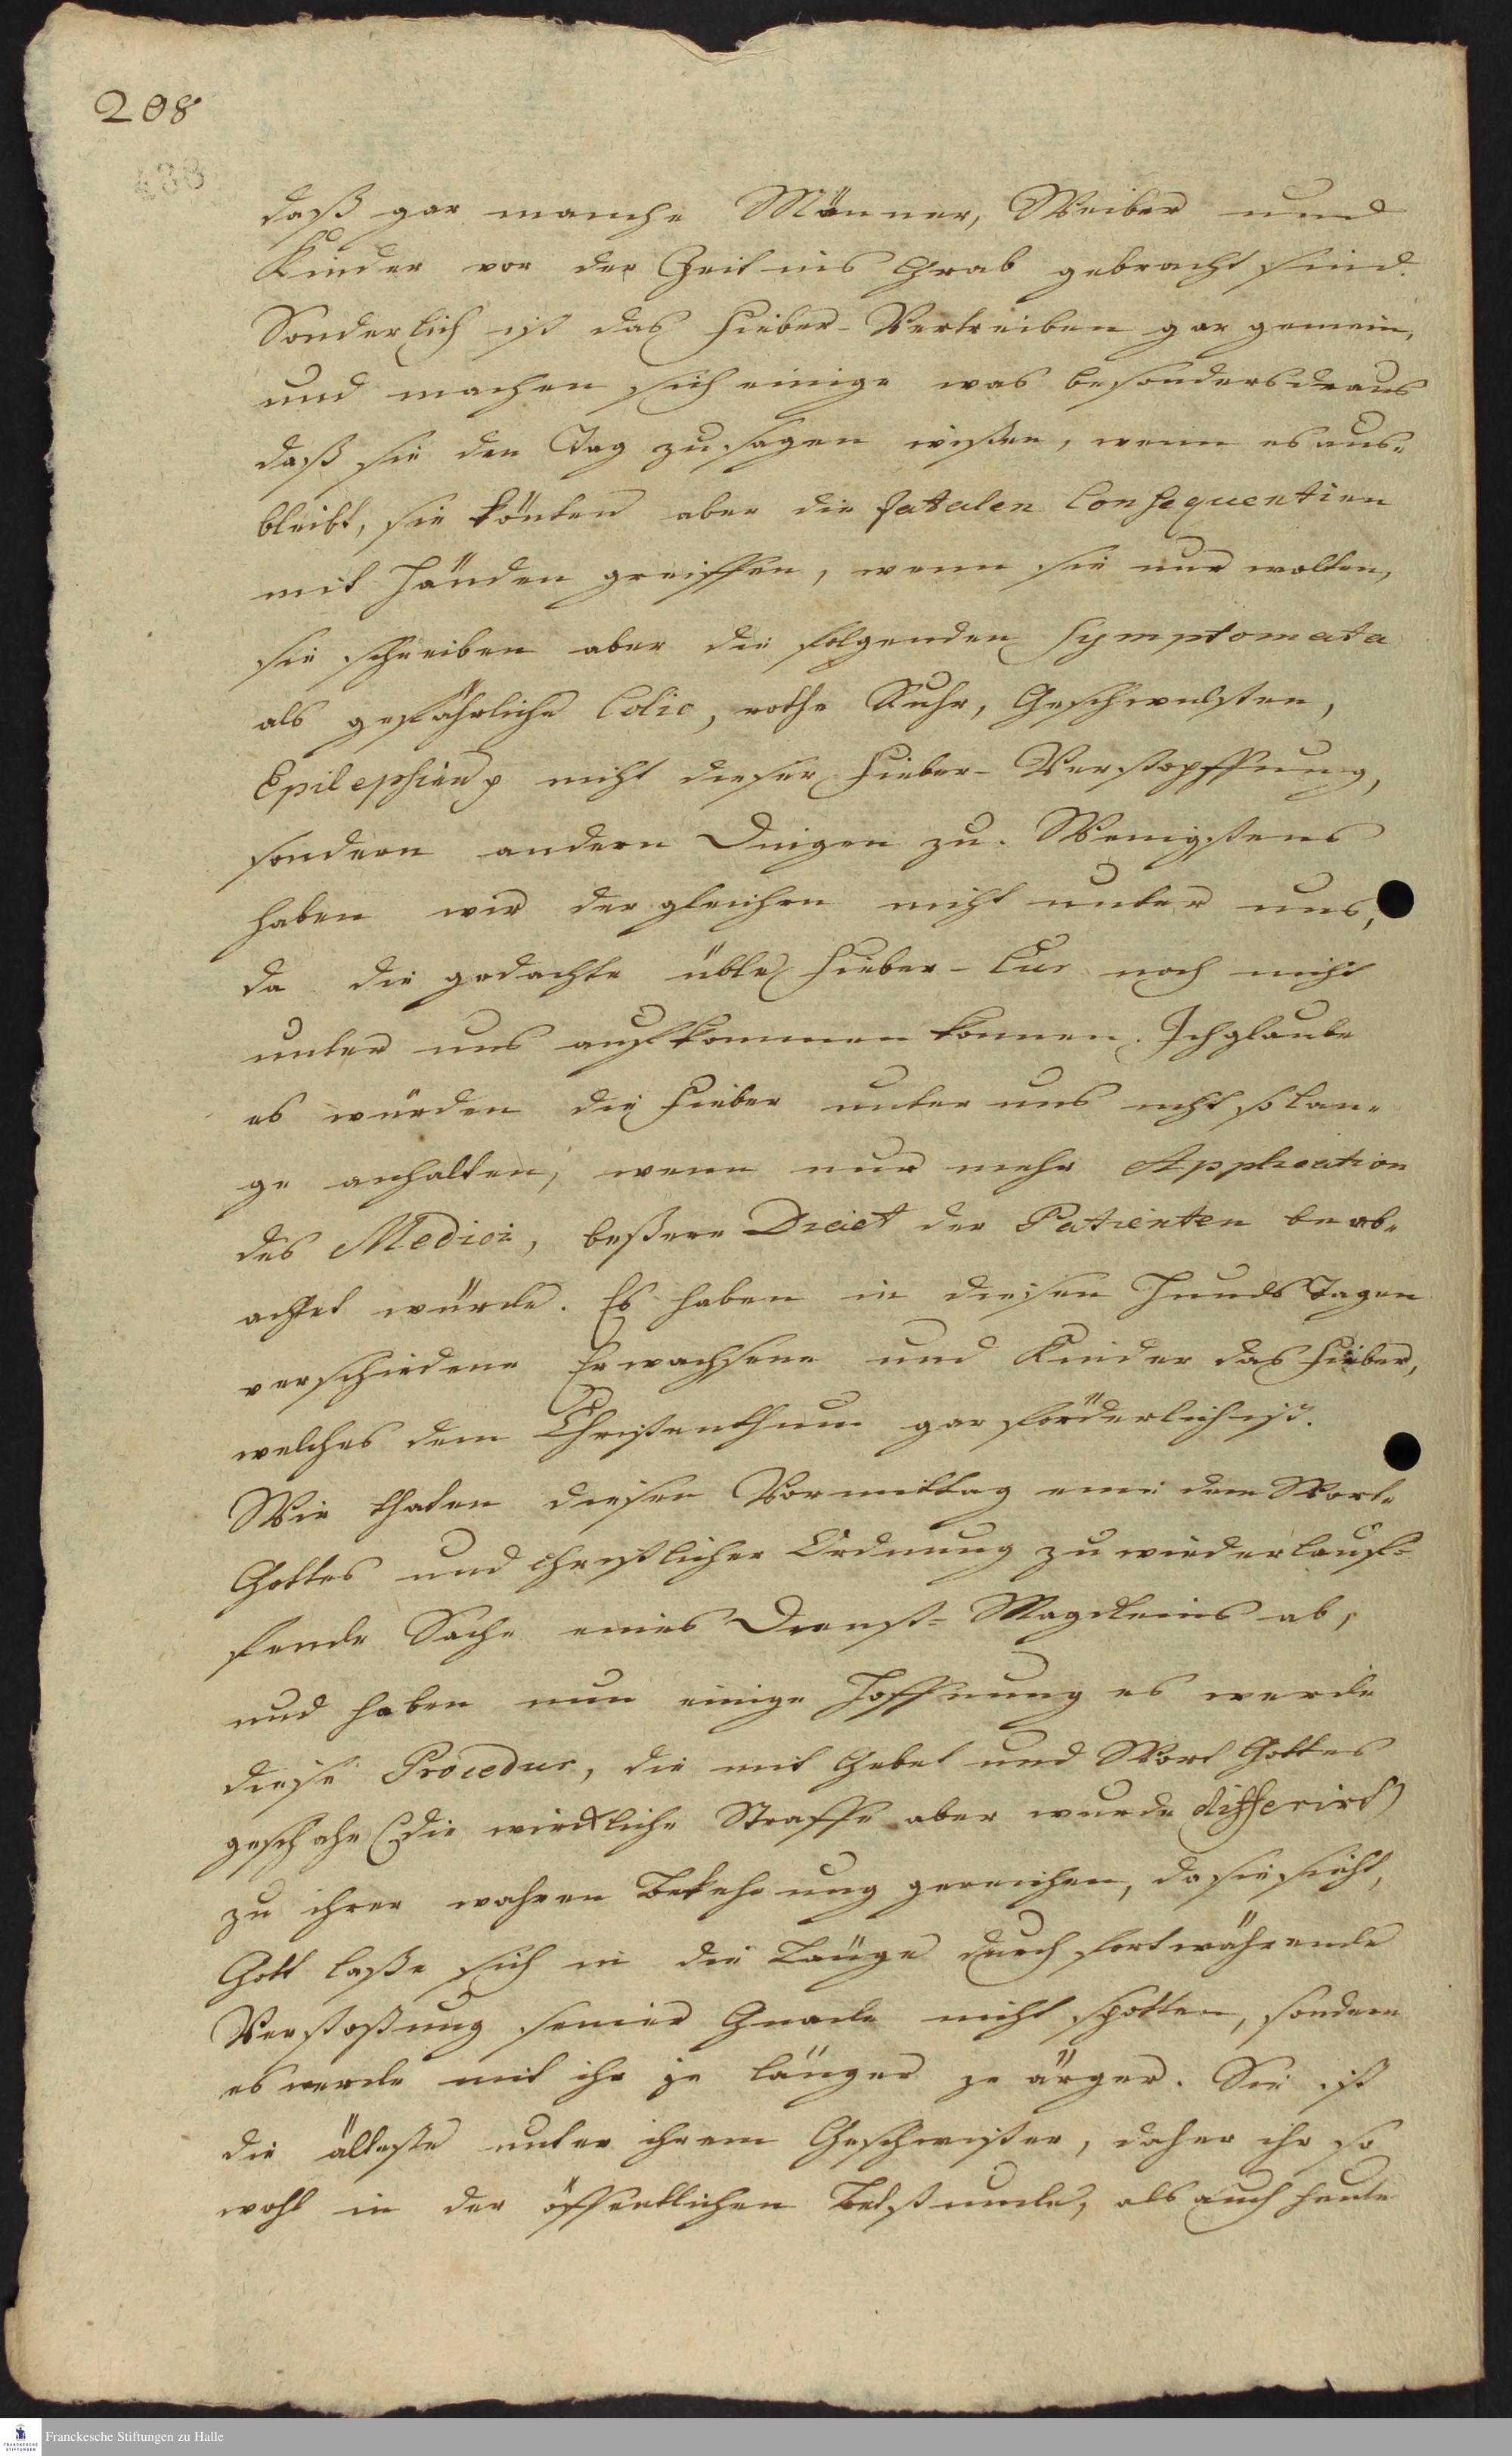 208
438
daß gar manche Männer, Weiber und
Kinder vor der Zeit ins Grab gebracht sind.
Sonderlich ist das Fieber-Vertreiben gar gemein,
und machen sich einige was besonders draus
daß sie den Tag zu sagen wißen, wenn es aus-
bleibt, sie könten aber die fatalen Consequentien
mit Händen greiffen, wenn sie nur wolten,
sie schreiben aber die folgenden Symptomata
als gefährliche Colic, rothe Ruhr, Geschwulsten,
Epilepsien p nicht dieser Fieber-Verstopffung,
sondern andern Dingen zu. Wenigstens
haben wir der gleichen nicht unter uns,
da die gedachte üble Fieber-Cur noch nicht
unter uns aufkommen können. Ich glaube
es würden die Fieber unter uns nicht so lan-
ge anhalten, wenn nur mehr Application
des Medici, beßere Diaet der Patienten beob-
achtet würde. Es haben in diesen Hunds Tagen
verschiedene Erwachsene und Kinder das Fieber,
welches dem Christenthum gar förderlich ist.
Wir thaten diesen Vormittag eine dem Worte
Gottes und christlicher Ordnung zu wieder lauf-
fende Sache eines Dienst-Mägdleins ab,
und haben nun einige Hoffnung es werde
diese Procedur, die mit Gebet und Wort Gottes
geschahe (die wirckliche Straffe aber wurde differirt)
zu ihrer wahren Bekehrung gereichen, da sie sieht,
Gott laße sich in die Länge durch fortwährende
Verstoßung seiner Gnade nicht spotten, sondern
es werde mit ihr je länger je ärger. Sie ist
die älteste unter ihrem Geschwister, daher ihr so
wohl in der öffentlichen Betstunde, als auch heute
Franckesche Stiftungen zu Halle